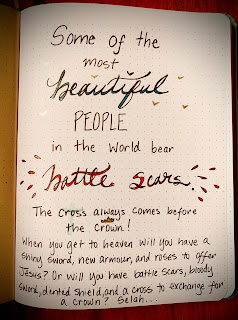 Some of the
most
beautiful
PEOPLE
in the world bear
battle scars.
The cross always comes before
the crown!
When you get to heaven will you have a
shiny sword, new armour, and roses to offer
Jesus? Or will you have battle scars, bloody
sword, dented shield, and a cross to exchange for
a crown? Selah...